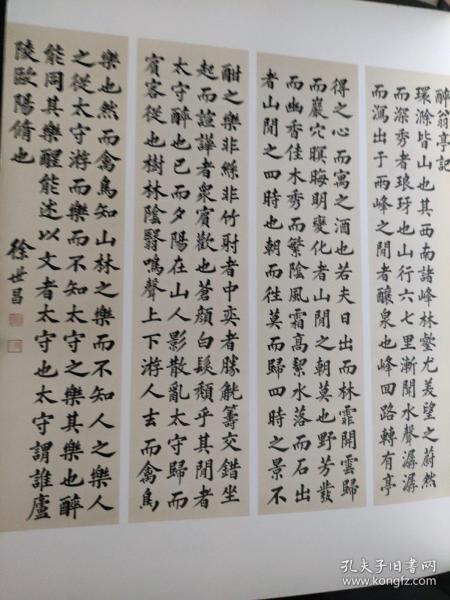 醉翁亭記
環滁皆山也其西南諸峰林壑尤美望之蔚然
而深秀者琅玡也山行六七里漸聞水聲潺潺
而瀉出于兩峰之閒者釀泉也峰回路轉有亭
得之心而寓之酒也若夫日出而林霏開雲歸
而巖穴暝晦明變化者山閒之朝莫也野芳發
而幽香佳木秀而繁陰風霜高絜水落而石出
者山閒之四時也朝而往莫而歸四時之景不
酣之樂非絲非竹射者中奕者勝觥籌交錯坐
起而諠譁者衆賓歡也蒼顏白髮頹乎其閒者
太守醉也已而夕陽在山人影散亂太守歸而
賓客從也樹林陰翳鳴聲上下游人去而禽鳥
樂也然而禽鳥知山林之樂而不知人之樂人
之從太守游而樂而不知太守之樂其樂也醉
能同其樂醒能述以文者太守也太守謂誰廬
陵歐陽脩也
徐世昌
孔夫子旧书网
www.kongfz.com